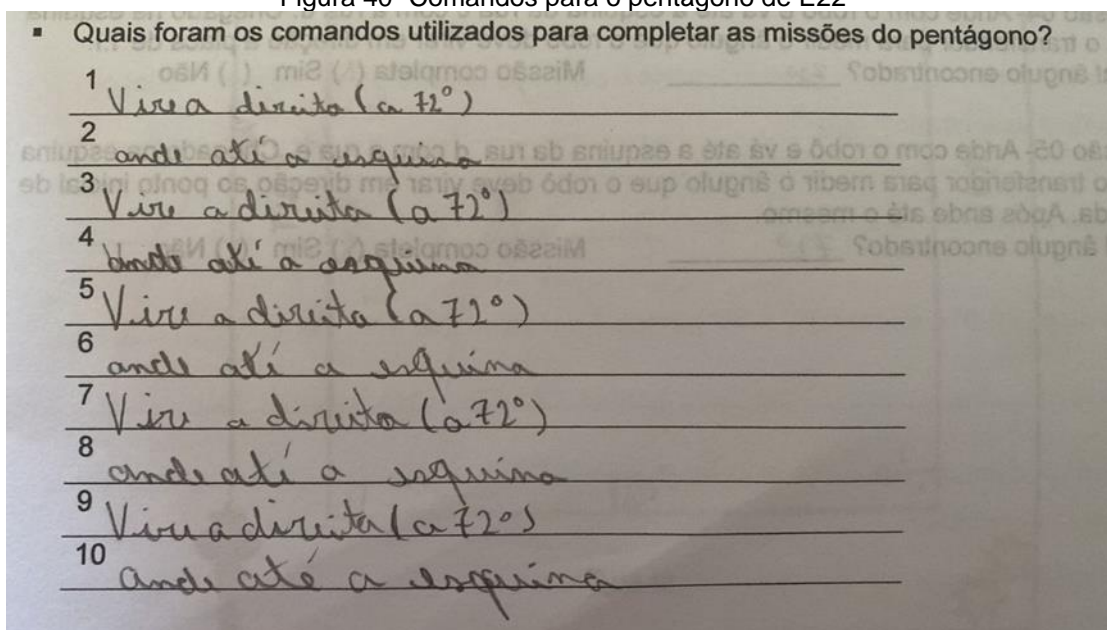 Figura 40- Comandos para o pentágono de E22
▪ Quais foram os comandos utilizados para completar as missões do pentágono?
1 Vire a direita (a 72°)
2 ande até a esquina
3 Vire a direita (a 72°)
4 ande até a esquina
5 Vire a direita (a 72°)
6 ande até a esquina
7 Vire a direita (a 72°)
8 ande até a esquina
9 Vire a direita (a 72°)
10 ande até a esquina